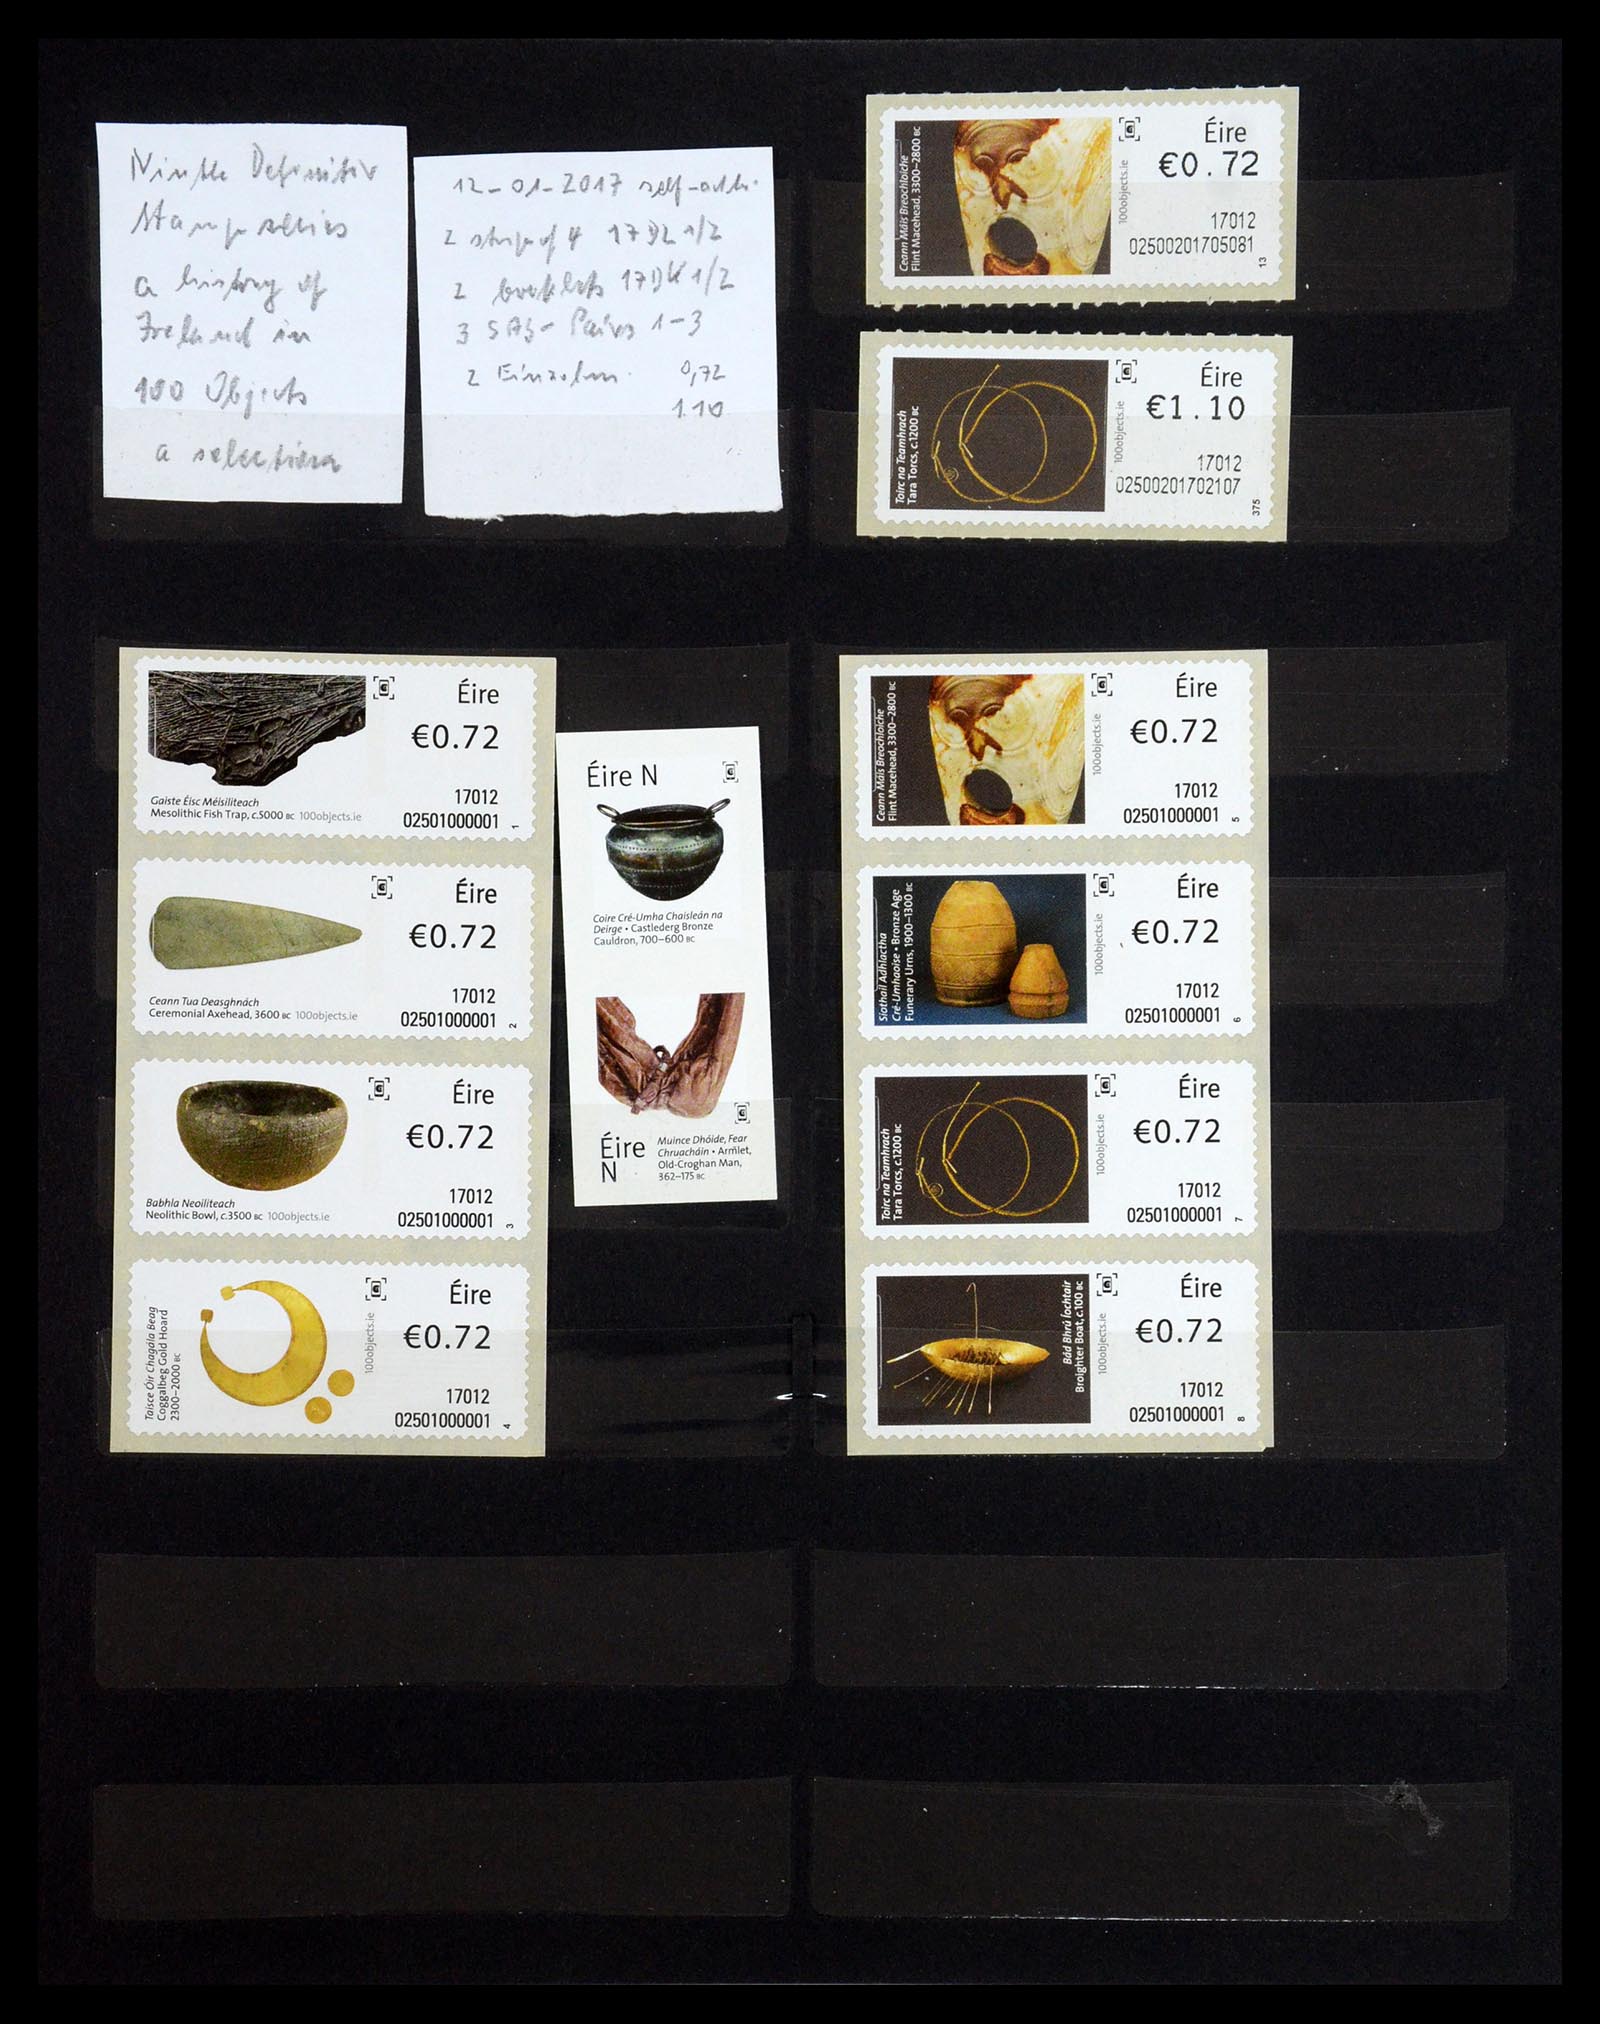 Ninth Definitiv
Stamp series
a history of
Ireland in
100 Objects
a selection
12-01-2017 self-adh.
2 strip of 4 17DL 1/2
2 booklets 17DK 1/2
3 SAS- Pairs 1-3
2 Einzelm. 0,72
1.10
Ceann Máis Breochloiche
Flint Macehead, 3300–2800 BC
100objects.ie
Éire
€0.72
17012
02500201705081
13
Toirc na Teamhrach
Tara Torcs, c.1200 BC
100objects.ie
Éire
€1.10
17012
02500201702107
375
Éire
€0.72
Gaiste Éisc Méisiliteach
Mesolithic Fish Trap, c.5000 BC 100objects.ie
17012
02501000001
1
Éire
€0.72
Ceann Tua Deasghnách
Ceremonial Axehead, 3600 BC 100objects.ie
17012
02501000001
2
Éire
€0.72
Babhla Neoiliteach
Neolithic Bowl, c.3500 BC 100objects.ie
17012
02501000001
3
Taisce Óir Chagála Beag
Coggalbeg Gold Hoard
2300–2000 BC
100objects.ie
Éire
€0.72
17012
02501000001
4
Éire N
Coire Cré-Umha Chaisleán na
Deirge • Castlederg Bronze
Cauldron, 700–600 BC
Éire
N
Muince Dhóide, Fear
Chruacháin • Armlet,
Old-Croghan Man,
362–175 BC
Ceann Máis Breochloiche
Flint Macehead, 3300–2800 BC
100objects.ie
Éire
€0.72
17012
02501000001
5
Síothail Adhlactha
Cré-Umhaoise • Bronze Age
Funerary Urns, 1900–1300 BC
100objects.ie
Éire
€0.72
17012
02501000001
6
Toirc na Teamhrach
Tara Torcs, c.1200 BC
100objects.ie
Éire
€0.72
17012
02501000001
7
Bád Bhrú Iochtair
Broighter Boat, c.100 BC
100objects.ie
Éire
€0.72
17012
02501000001
8